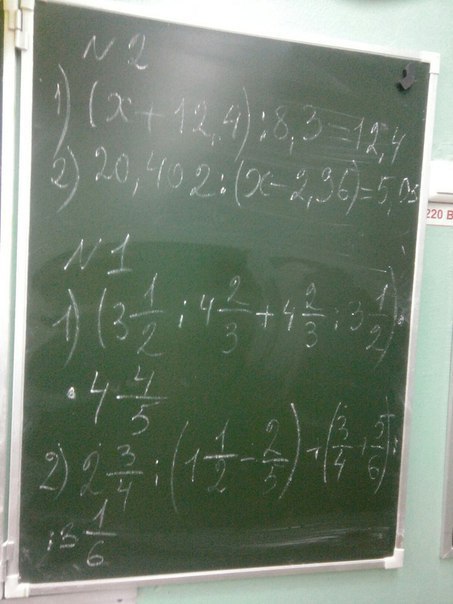 N 2
1) (x + 12,4) : 8,3 = 12,4
2) 20,402 : (x - 2,96) = 5,05
220 В
N 1
1) (3 1/2 : 4 2/3 + 4 2/3 : 3 1/2) ·
· 4 4/5
2) 2 3/4 : (1 1/2 - 2/5) + (3/4 + 5/6) :
: 3 1/6